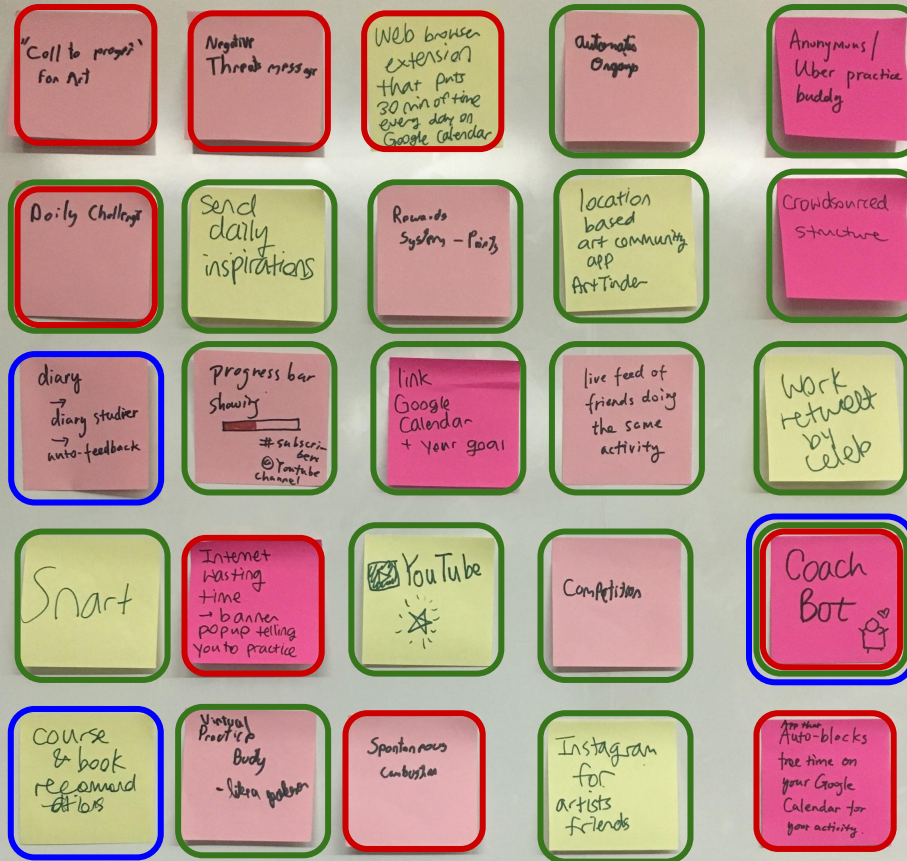 "Call to prayer"
For Art
Negative
Threats message
Web browser
extension
that puts
30 min of time
every day on
Google Calendar
automatic
Anonymous/
Uber practice
buddy
Daily Challenge
Send
daily
inspirations
Rewards
System - Points
location
based
art community
app
ArtTinder
Crowdsourced
structure
diary
→
diary studies
→
auto-feedback
progress bar
showing
# subscri
bers
@ Youtube
channel
link
Google
Calendar
+ your goal
live feed of
friends doing
the same
activity
Work
retweet
by
celeb
Snart
Internet
wasting
time
→ banner
popup telling
you to practice
YouTube
Competition
Coach
Bot
course
& book
recommend
ations
Virtual
Practice
Buddy
- like a
Spontaneous
Combustion
Instagram
for
artists
friends
App that
Auto-blocks
free time on
your Google
Calendar for
your activity.